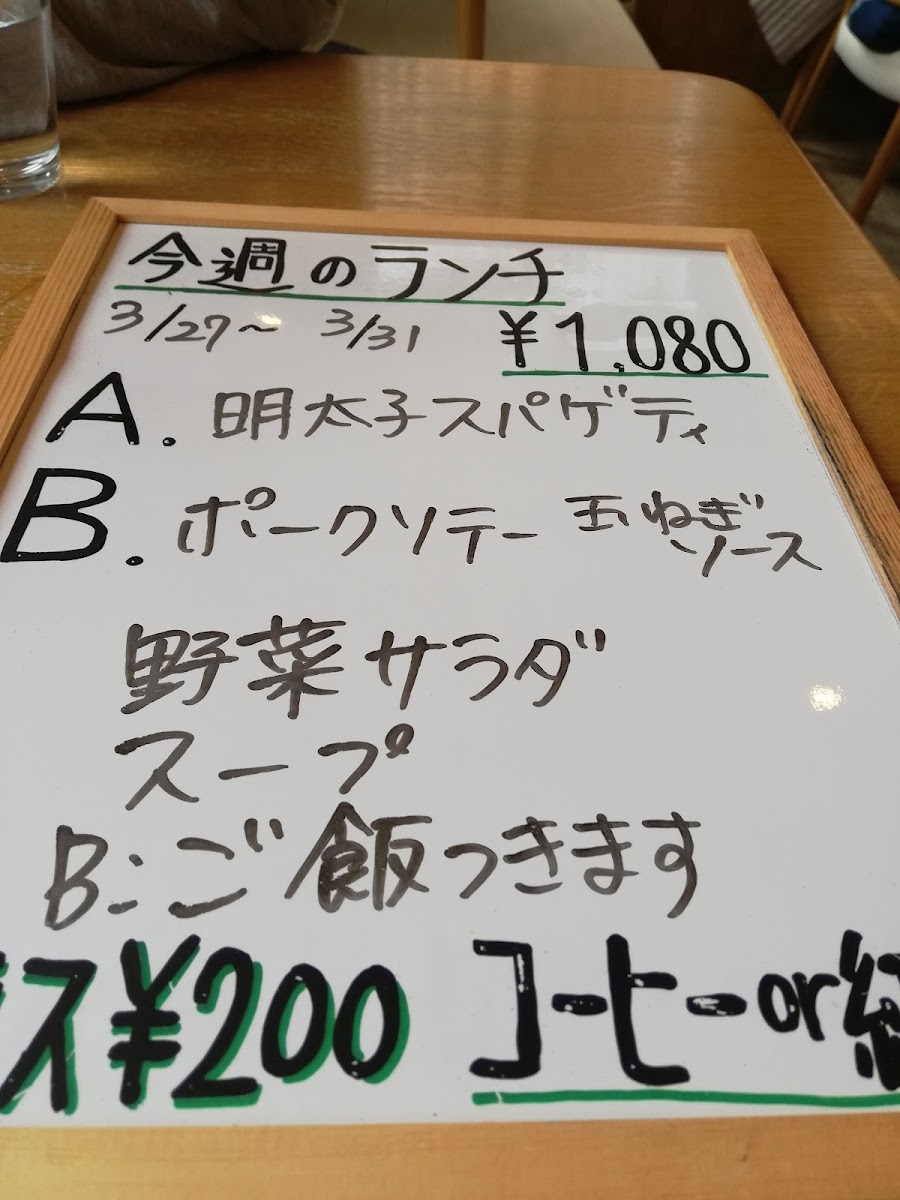 今週のランチ
3/27～3/31 ¥1,080
A. 明太子スパゲティ
B. ポークソテー 玉ねぎソース
野菜サラダ
スープ
B:ご飯つきます
ス¥200 コーヒーor紅